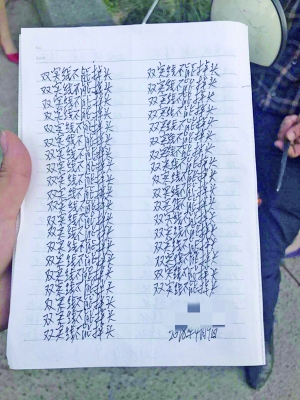 双实线不能掉头
双实线不能掉头
双实线不能掉头
双实线不能掉头
双实线不能掉头
双实线不能掉头
双实线不能掉头
双实线不能掉头
双实线不能掉头
双实线不能掉头
双实线不能掉头
双实线不能掉头
双实线不能掉头
双实线不能掉头
双实线不能掉头
双实线不能掉头
双实线不能掉头
双实线不能掉头
双实线不能掉头
双实线不能掉头
双实线不能掉头
双实线不能掉头
双实线不能掉头
双实线不能掉头
双实线不能掉头
双实线不能掉头
双实线不能掉头
双实线不能掉头
双实线不能掉头
双实线不能掉头
双实线不能掉头
双实线不能掉头
双实线不能掉头
双实线不能掉头
双实线不能掉头
双实线不能掉头
双实线不能掉头
双实线不能掉头